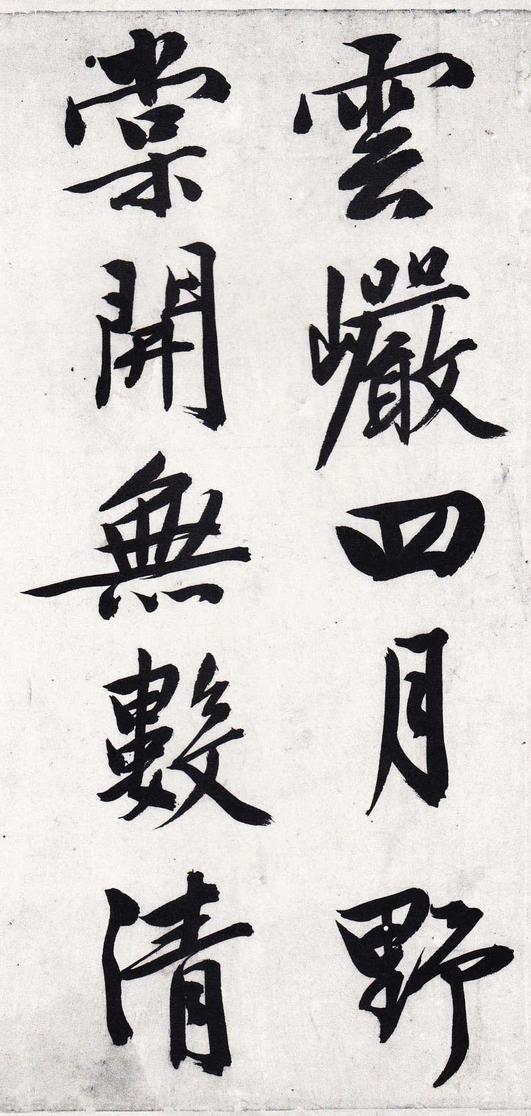 雲巖四月野
棠開無數清